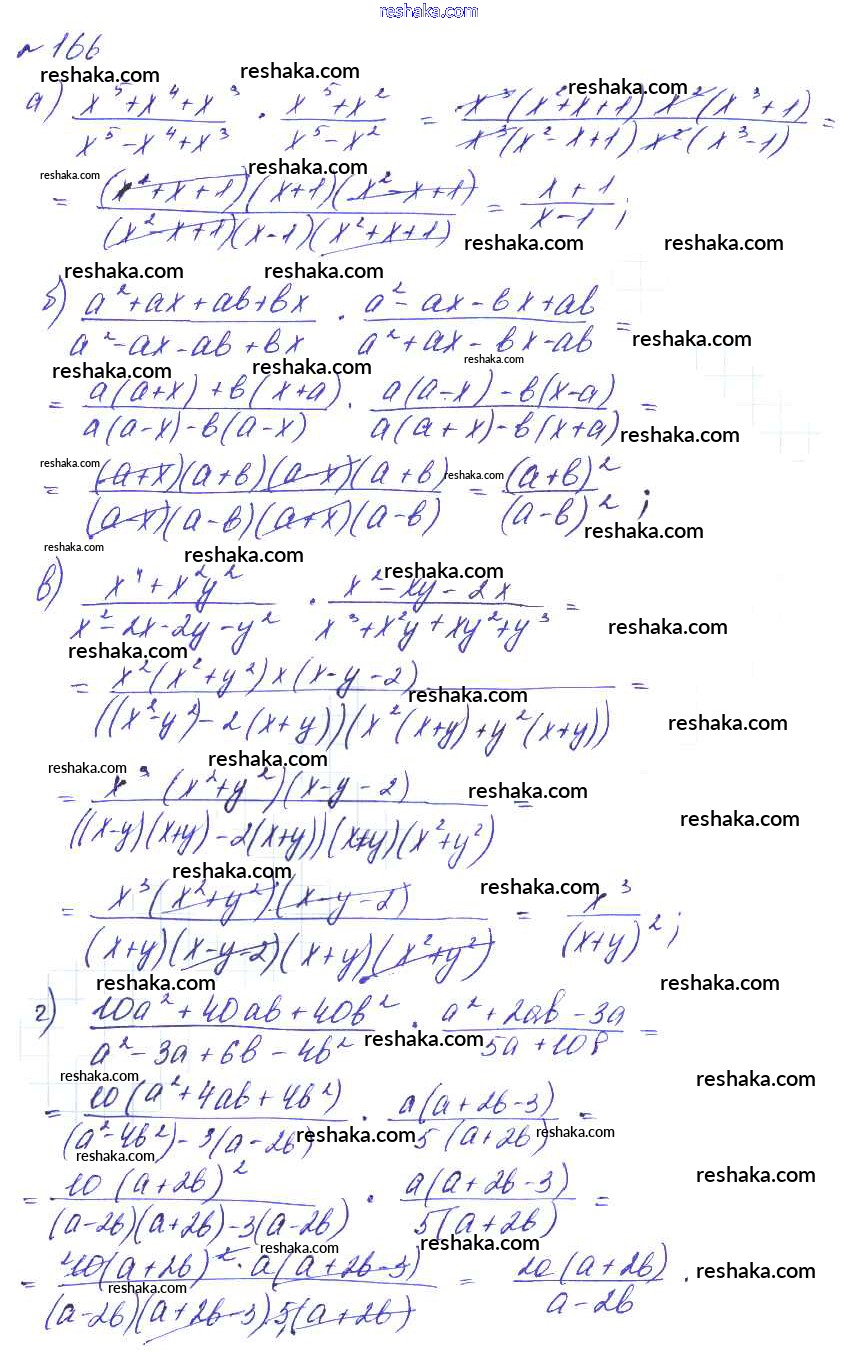 reshaka.com
№ 166
reshaka.com reshaka.com reshaka.com
а) (x⁵+x⁴+x³)/(x⁵-x⁴+x³) · (x⁵+x²)/(x⁵-x²) = (x³(x²+x+1) x²(x³+1))/(x³(x²-x+1) x²(x³-1)) =
reshaka.com reshaka.com
= ((x²+x+1)(x+1)(x²-x+1))/((x²-x+1)(x-1)(x²+x+1)) = (x+1)/(x-1);
reshaka.com reshaka.com
reshaka.com reshaka.com
б) (a²+ax+ab+bx)/(a²-ax-ab+bx) · (a²-ax-bx+ab)/(a²+ax-bx-ab) =
reshaka.com
reshaka.com
reshaka.com reshaka.com
= (a(a+x)+b(x+a))/(a(a-x)-b(a-x)) · (a(a-x)-b(x-a))/(a(a+x)-b(x+a)) =
reshaka.com
reshaka.com reshaka.com
= ((a+x)(a+b)(a-x)(a+b))/((a-x)(a-b)(a+x)(a-b)) = (a+b)²/(a-b)²;
reshaka.com
reshaka.com reshaka.com
reshaka.com
в) (x⁴+x²y²)/(x²-2x-2y-y²) · (x²-xy-2x)/(x³+x²y+xy²+y³) =
reshaka.com
reshaka.com
= (x²(x²+y²)x(x-y-2))/(((x²-y²)-2(x+y))(x²(x+y)+y²(x+y))) =
reshaka.com
reshaka.com
reshaka.com reshaka.com
= (x³(x²+y²)(x-y-2))/(((x-y)(x+y)-2(x+y))(x+y)(x²+y²)) =
reshaka.com
reshaka.com
reshaka.com reshaka.com
= (x³(x²+y²)(x-y-2))/((x+y)(x-y-2)(x+y)(x²+y²)) = x³/(x+y)²;
reshaka.com reshaka.com
г) (10a²+40ab+40b²)/(a²-3a+6b-4b²) · (a²+2ab-3a)/(5a+10b) =
reshaka.com
reshaka.com reshaka.com
= (10(a²+4ab+4b²))/((a²-4b²)-3(a-2b)) · (a(a+2b-3))/(5(a+2b)) =
reshaka.com reshaka.com
reshaka.com reshaka.com
= (10(a+2b)²)/((a-2b)(a+2b)-3(a-2b)) · (a(a+2b-3))/(5(a+2b)) =
reshaka.com reshaka.com
reshaka.com
= (10(a+2b)²·a(a+2b-3))/((a-2b)(a+2b-3)·5(a+2b)) = (2a(a+2b))/(a-2b).